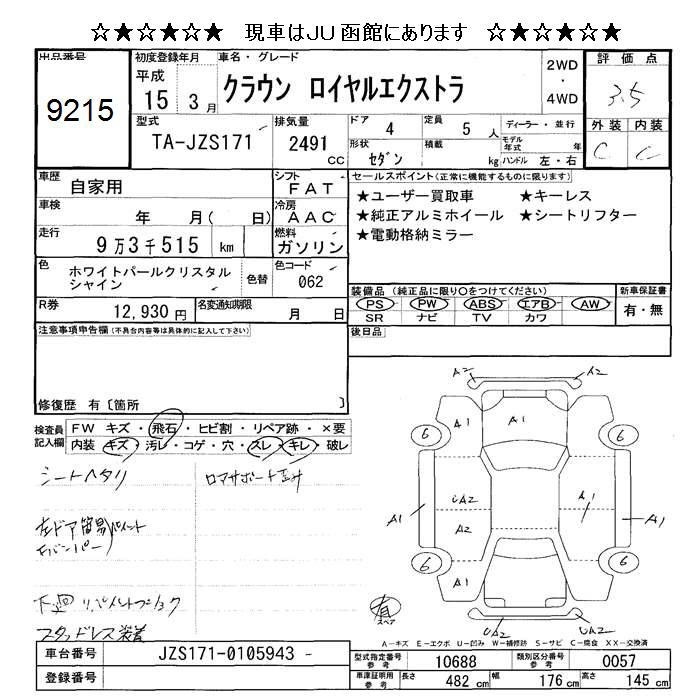 ☆★☆★☆★ 現車はJU函館にあります ☆★☆★☆★
出品番号 初度登録年月 車名・グレード 2WD・4WD 評価点
9215 平成 15 3月 クラウン ロイヤルエクストラ 3.5
型式 排気量 ドア 4 定員 5人 ディーラー・並行 外装 内装
TA-JZS171 2491 CC 形状 セダン 積載 kg モデル年式 年 ハンドル 左・右 C C
車歴 自家用 シフト FAT セールスポイント(正常に機能するものに限ります)
車検 年 月( 日) 冷房 AAC ★ユーザー買取車 ★キーレス
走行 9万3千515 km 燃料 ガソリン ★純正アルミホイール ★シートリフター
★電動格納ミラー
色 ホワイトパールクリスタルシャイン 色替 色コード 062
装備品(純正品に限り○をつけてください) 新車保証書
PS PW ABS エアB AW 有・無
SR ナビ TV カワ
R券 12,930円 名変通知期限 月 日
注意事項申告欄(不具合内容等は具体的に記入して下さい) 後日品
修復歴 有〔箇所 〕
検査員記入欄 FW キズ・飛石・ヒビ割・リペア跡・×要
内装 キズ・汚レ・コゲ・穴・スレ・キレ・破レ
シートヘタリ
左ドア簡易ペイント
下廻り
スタッドレス装着
A2 A2
A1 A1
6 6
A1 UA2 A1 A1
A2
6 6
A1
有 スペア
UA2 UA2
A-キズ E-エクボ U-凹み W-補修跡 S-サビ C-腐食 XX-交換済
車台番号 JZS171-0105943
登録番号
型式指定番号 参考 10688 類別区分番号 参考 0057
車庫証明用 参考 長さ 482 cm 幅 176 cm 高さ 145 cm